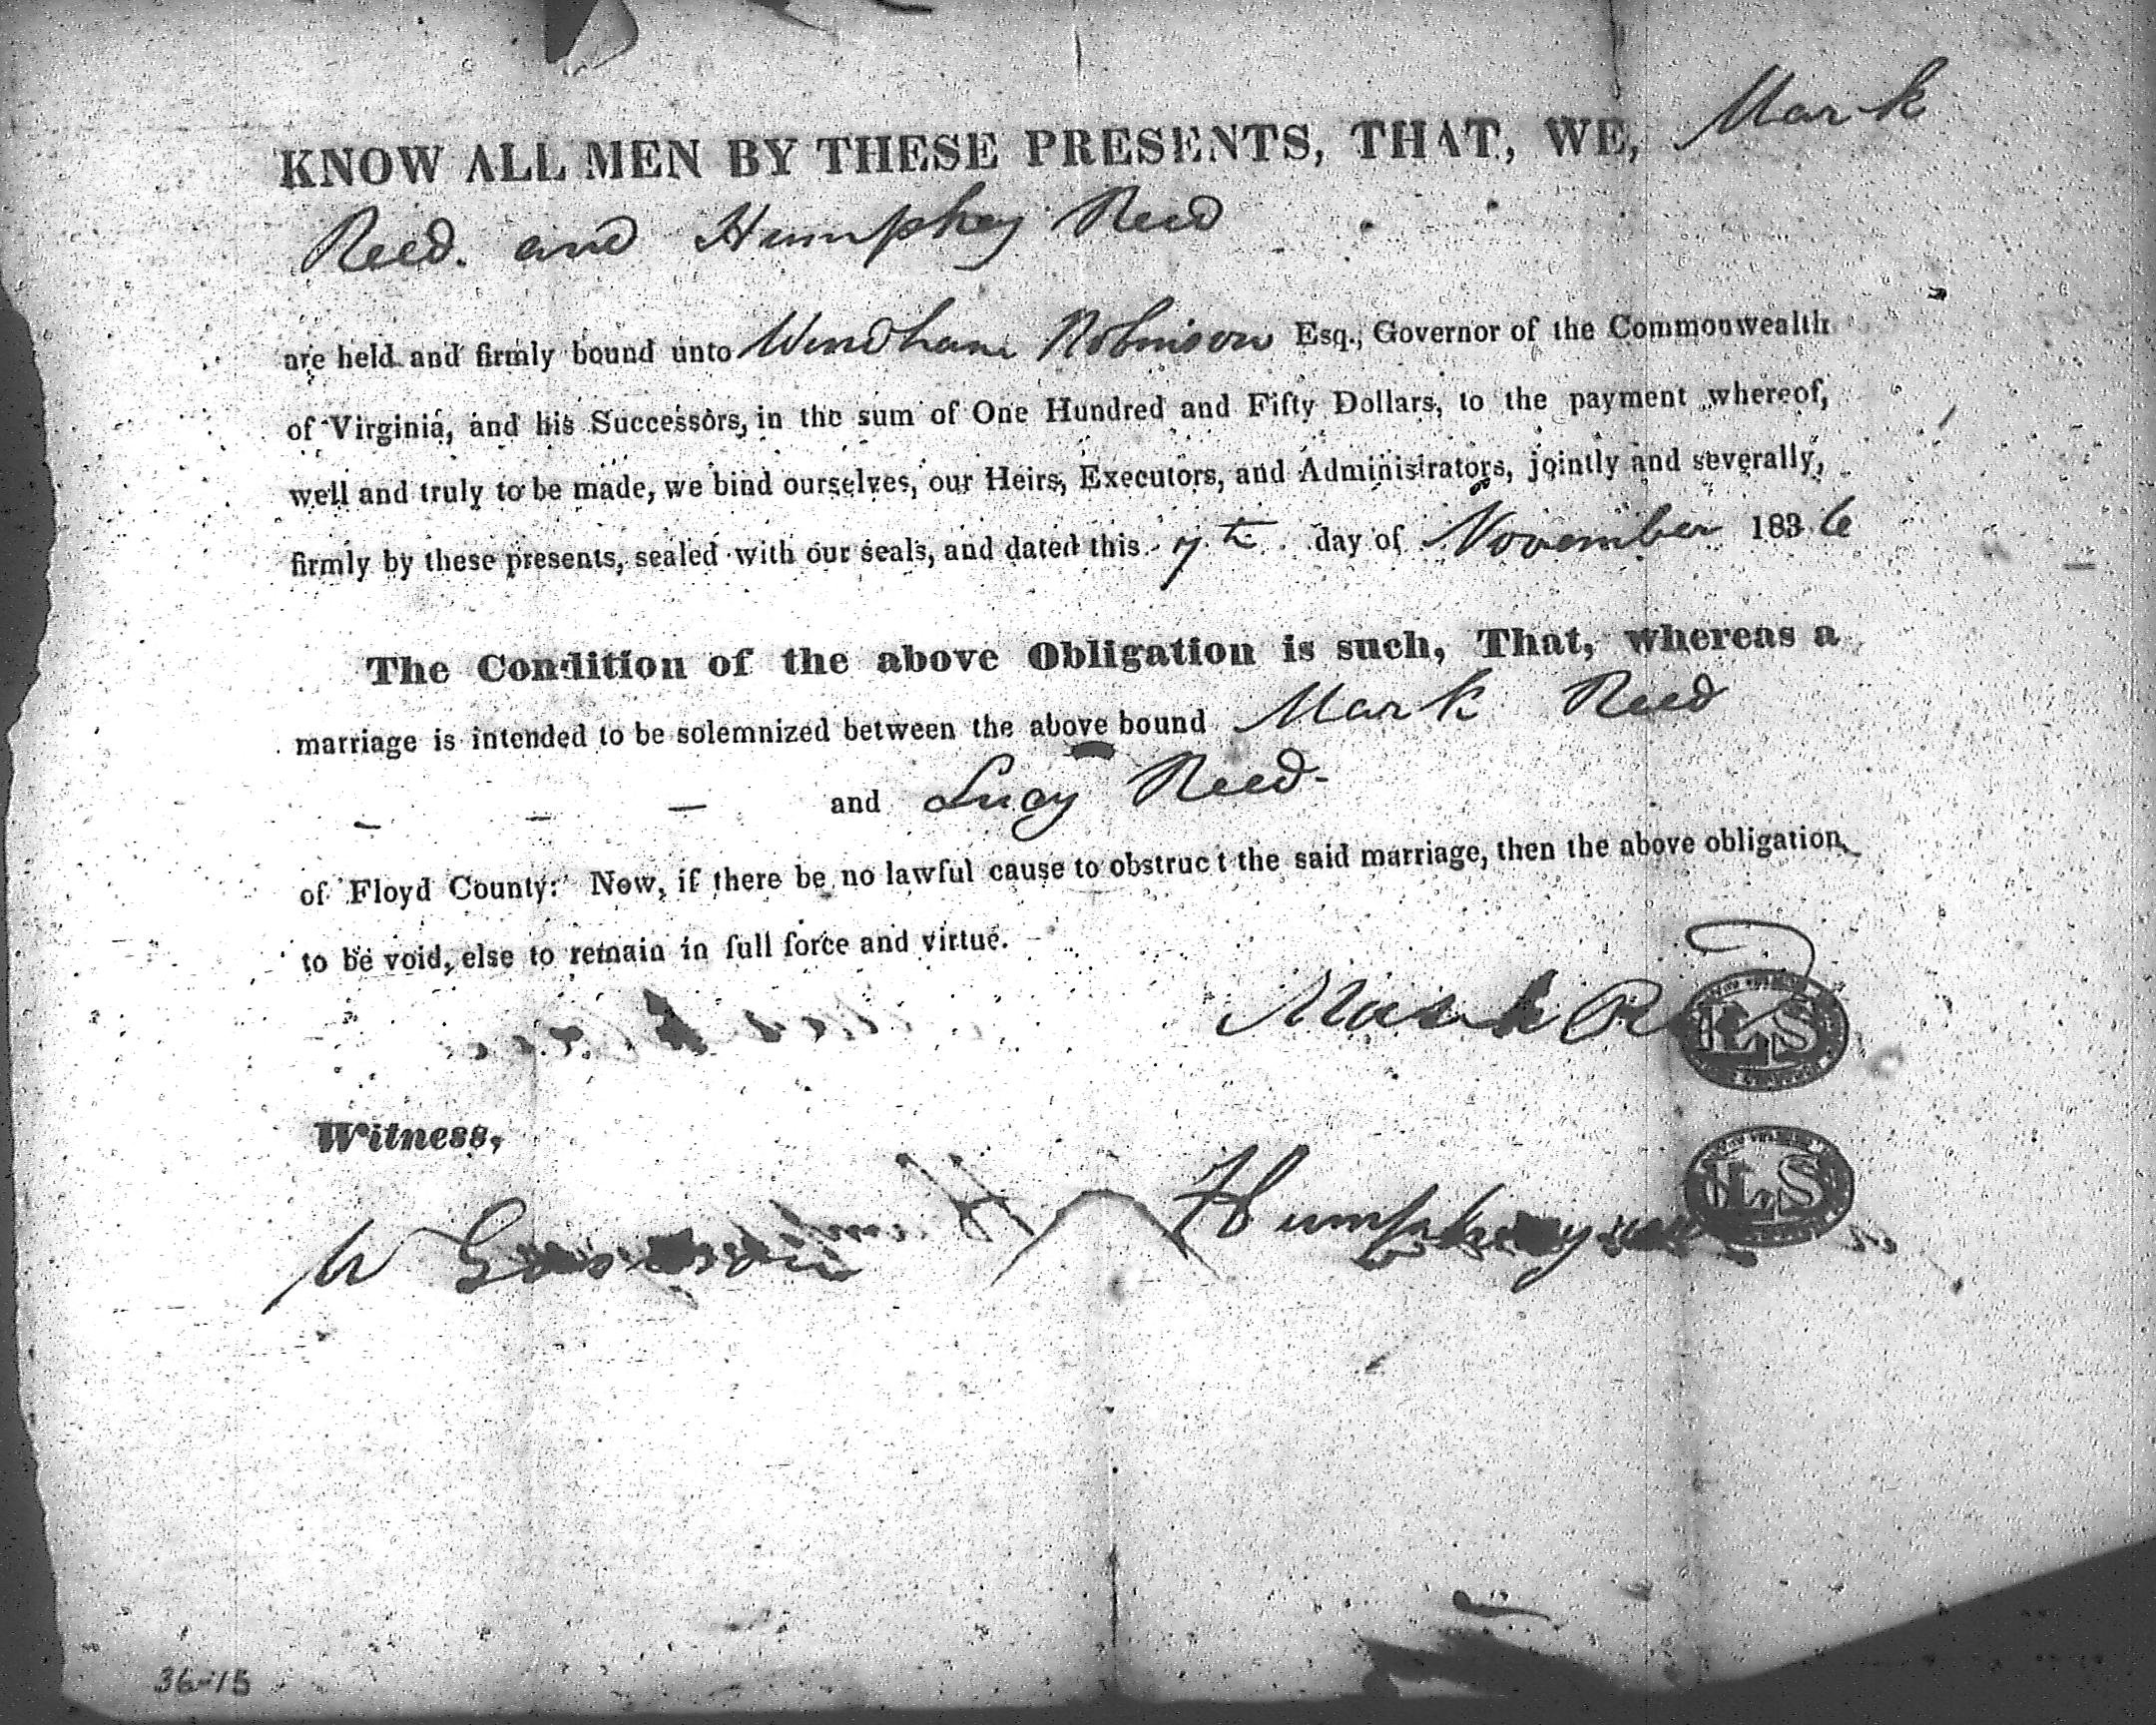 KNOW ALL MEN BY THESE PRESENTS, THAT, WE, Mark
Reed. and Humphey Reed
are held and firmly bound unto Windham Robinson Esq., Governor of the Commonwealth
of Virginia, and his Successors, in the sum of One Hundred and Fifty Dollars, to the payment whereof,
well and truly to be made, we bind ourselves, our Heirs, Executors, and Administrators, jointly and severally,
firmly by these presents, sealed with our seals, and dated this 7th day of November 1836
The Condition of the above Obligation is such, That, whereas a
marriage is intended to be solemnized between the above bound Mark Reed
and Lucy Reed.
of Floyd County: Now, if there be no lawful cause to obstruct the said marriage, then the above obligation
to be void, else to remain in full force and virtue.
Mark R
LS
Witness,
LS
W Humphey
36-15